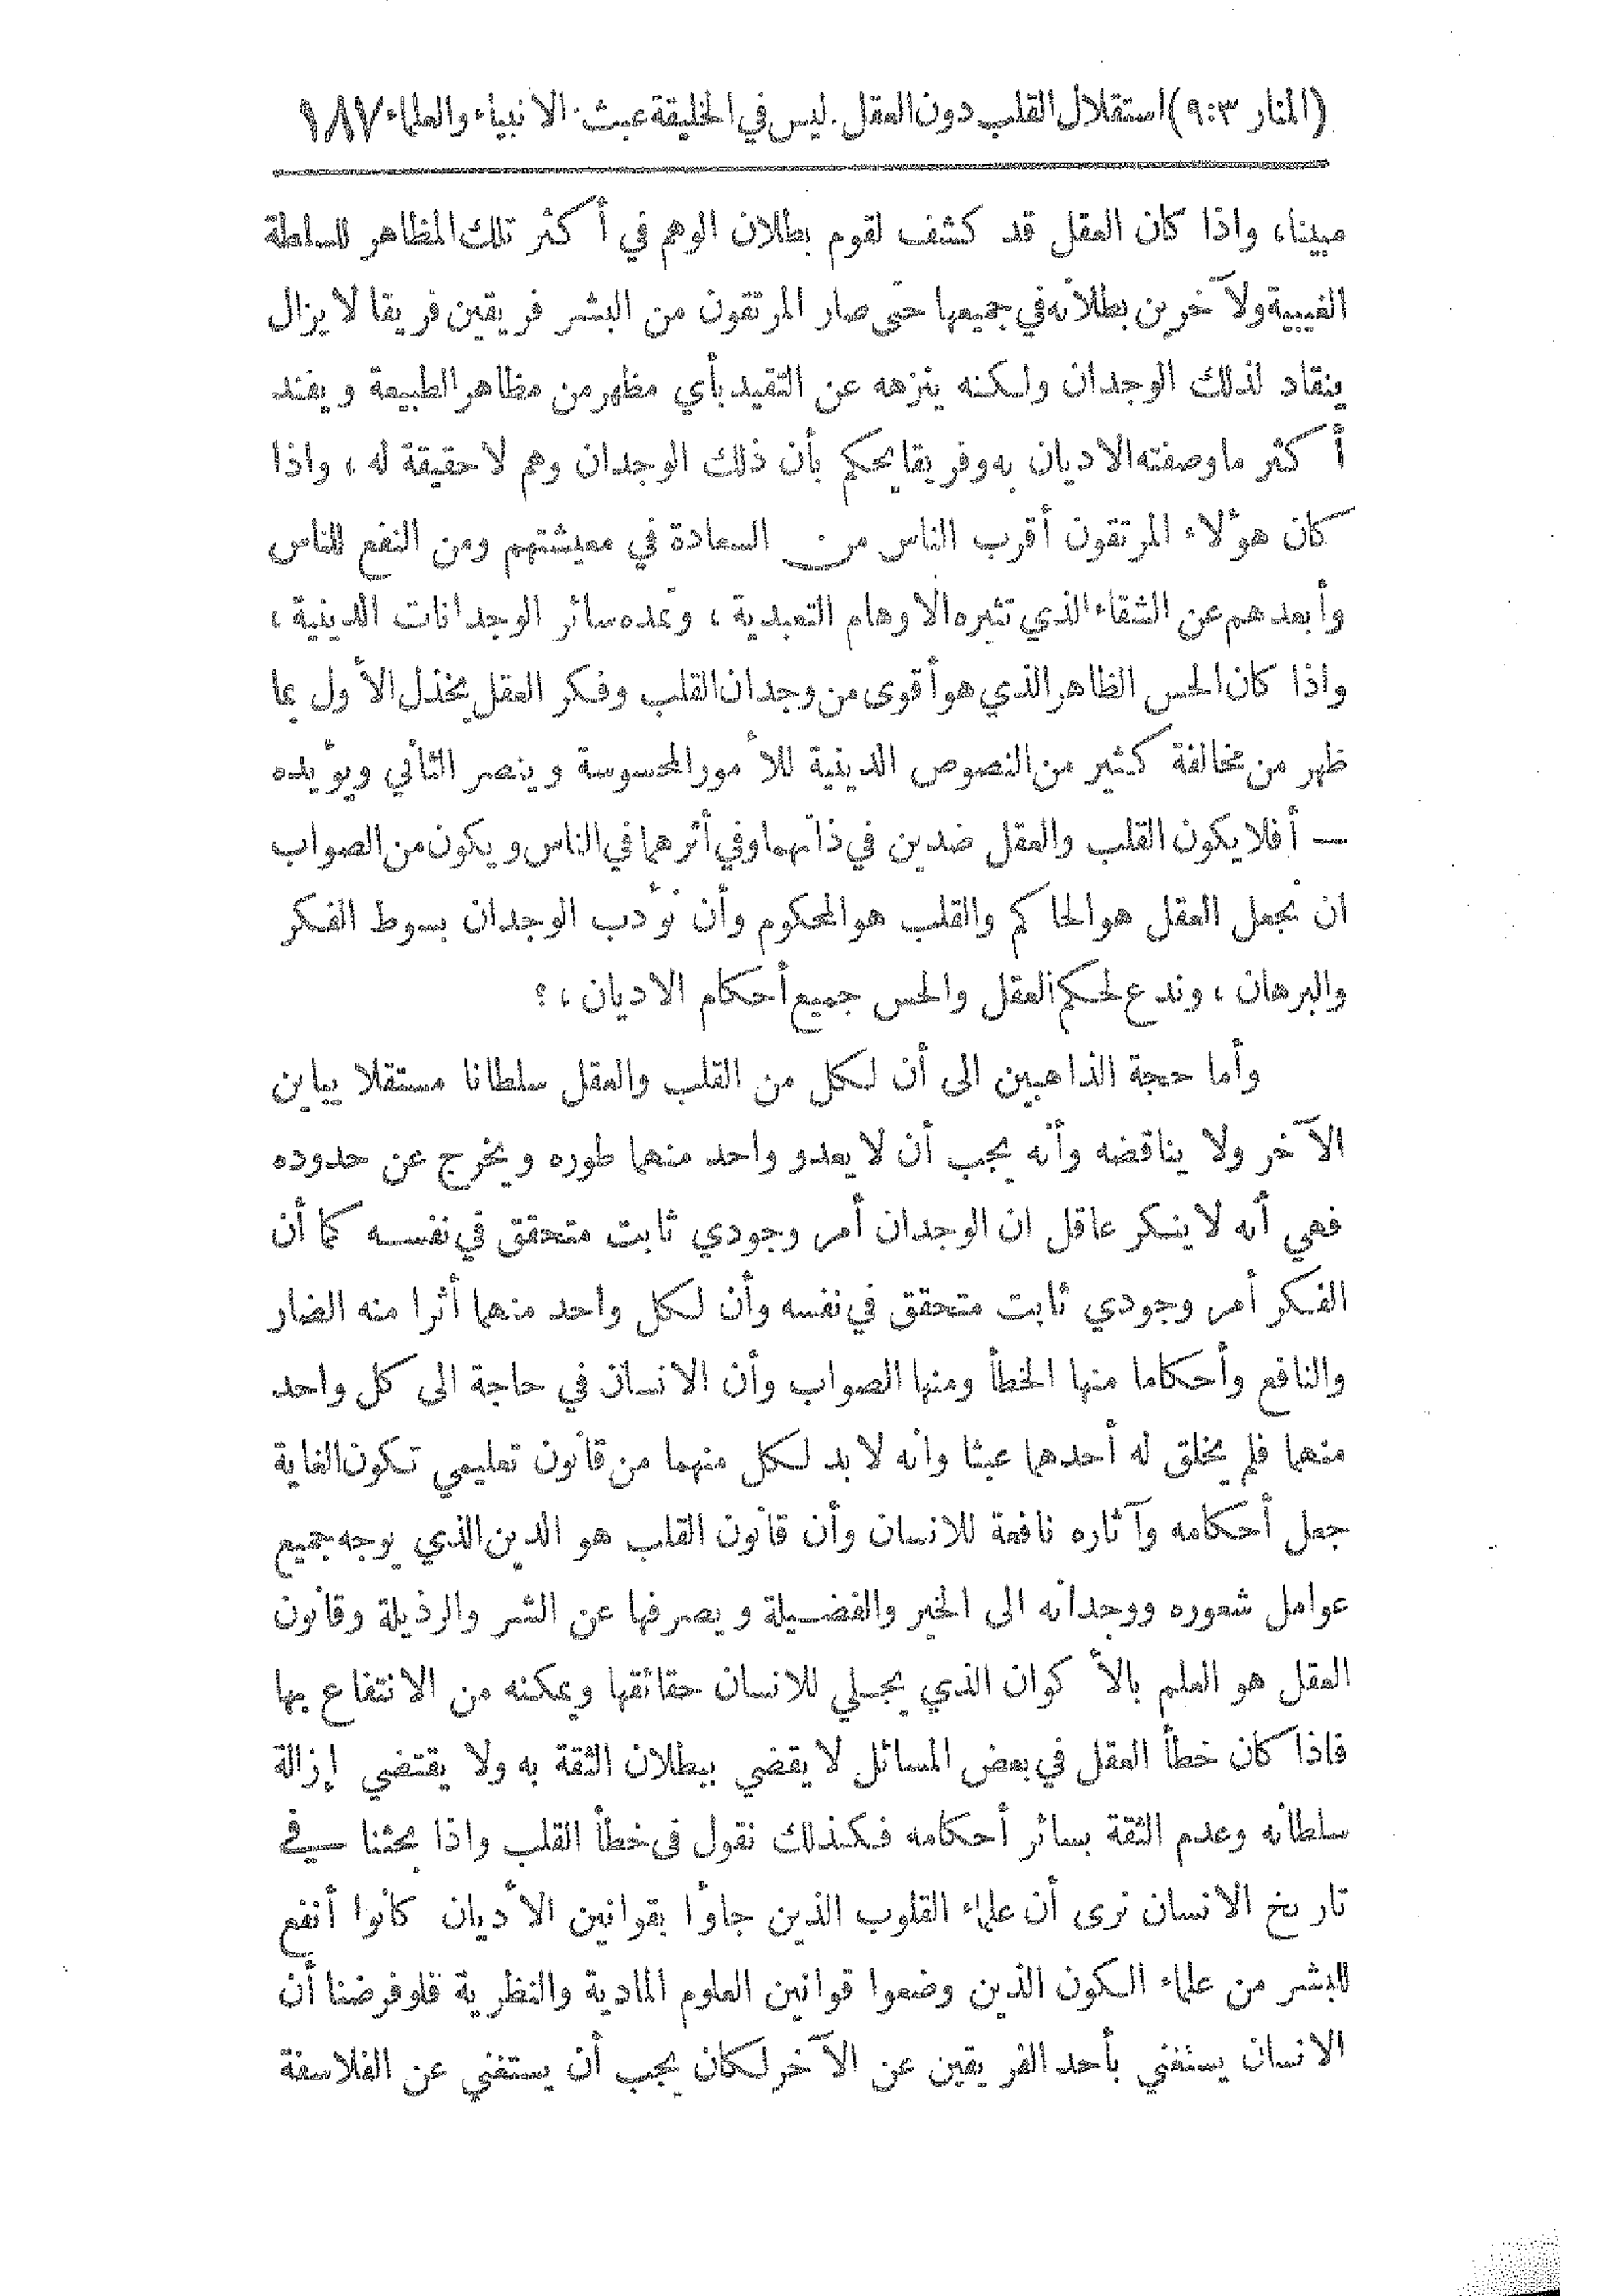 (المنار ٩:٣) استقلال القلب دون العقل. ليس في الخليقة عبث. الانبياء والعلماء ١٨٧
مبينا، واذا كان العقل قد كشف لقوم بطلان الوهم في أكثر تلك المظاهر للسلطة
الغيبية ولآخرين بطلانه في جميعها حتى صار المرتقون من البشر فريقين فريقا لا يزال
ينقاد لذلك الوجدان ولكنه ينزهه عن التقيد بأي مظهر من مظاهر الطبيعة ويفند
أكثر ما وصفته الاديان به وفريقا يحكم بأن ذلك الوجدان وهم لا حقيقة له، واذا
كان هؤلاء المرتقون أقرب الناس من السعادة في معيشتهم ومن النفع للناس
وأبعدهم عن الشقاء الذي تثيره الاوهام التعبدية، وتمده سائر الوجدانات الدينية،
واذا كان الحس الظاهر الذي هو أقوى من وجدان القلب وفكر العقل يخذل الأول بما
ظهر من مخالفة كثير من النصوص الدينية للأمور المحسوسة وينصر الثاني ويؤيده
— أفلا يكون القلب والعقل ضدين في ذاتهما وفي أثرهما في الناس ويكون من الصواب
ان نجعل العقل هو الحاكم والقلب هو المحكوم وأن نؤدب الوجدان بسوط الفكر
والبرهان، وندع لحكم العقل والحس جميع أحكام الاديان،؟
وأما حجة الذاهبين الى أن لكل من القلب والعقل سلطانا مستقلا يباين
الآخر ولا يناقضه وأنه يجب أن لا يعدو واحد منهما طوره ويخرج عن حدوده
فهي أنه لا ينكر عاقل ان الوجدان أمر وجودي ثابت متحقق في نفسه كما أن
الفكر أمر وجودي ثابت متحقق في نفسه وأن لكل واحد منهما أثرا منه الضار
والنافع وأحكاما منها الخطأ ومنها الصواب وأن الانسان في حاجة الى كل واحد
منهما فلم يخلق له أحدهما عبثا وانه لا بد لكل منهما من قانون تعليمي تكون الغاية
جعل أحكامه وآثاره نافعة للانسان وأن قانون القلب هو الدين الذي يوجه جميع
عوامل شعوره ووجدانه الى الخير والفضيلة ويصرفها عن الشر والرذيلة وقانون
العقل هو العلم بالأكوان الذي يجلي للانسان حقائقها ويمكنه من الانتفاع بها
فاذا كان خطأ العقل في بعض المسائل لا يقضي ببطلان الثقة به ولا يقتضي إزالة
سلطانه وعدم الثقة بسائر أحكامه فكذلك نقول في خطأ القلب واذا بحثنا في
تاريخ الانسان نرى أن علماء القلوب الذين جاؤا بقوانين الأديان كانوا أنفع
للبشر من علماء الكون الذين وضعوا قوانين العلوم المادية والنظرية فلو فرضنا أن
الانسان يستغني بأحد الفريقين عن الآخر لكان يجب أن يستغني عن الفلاسفة